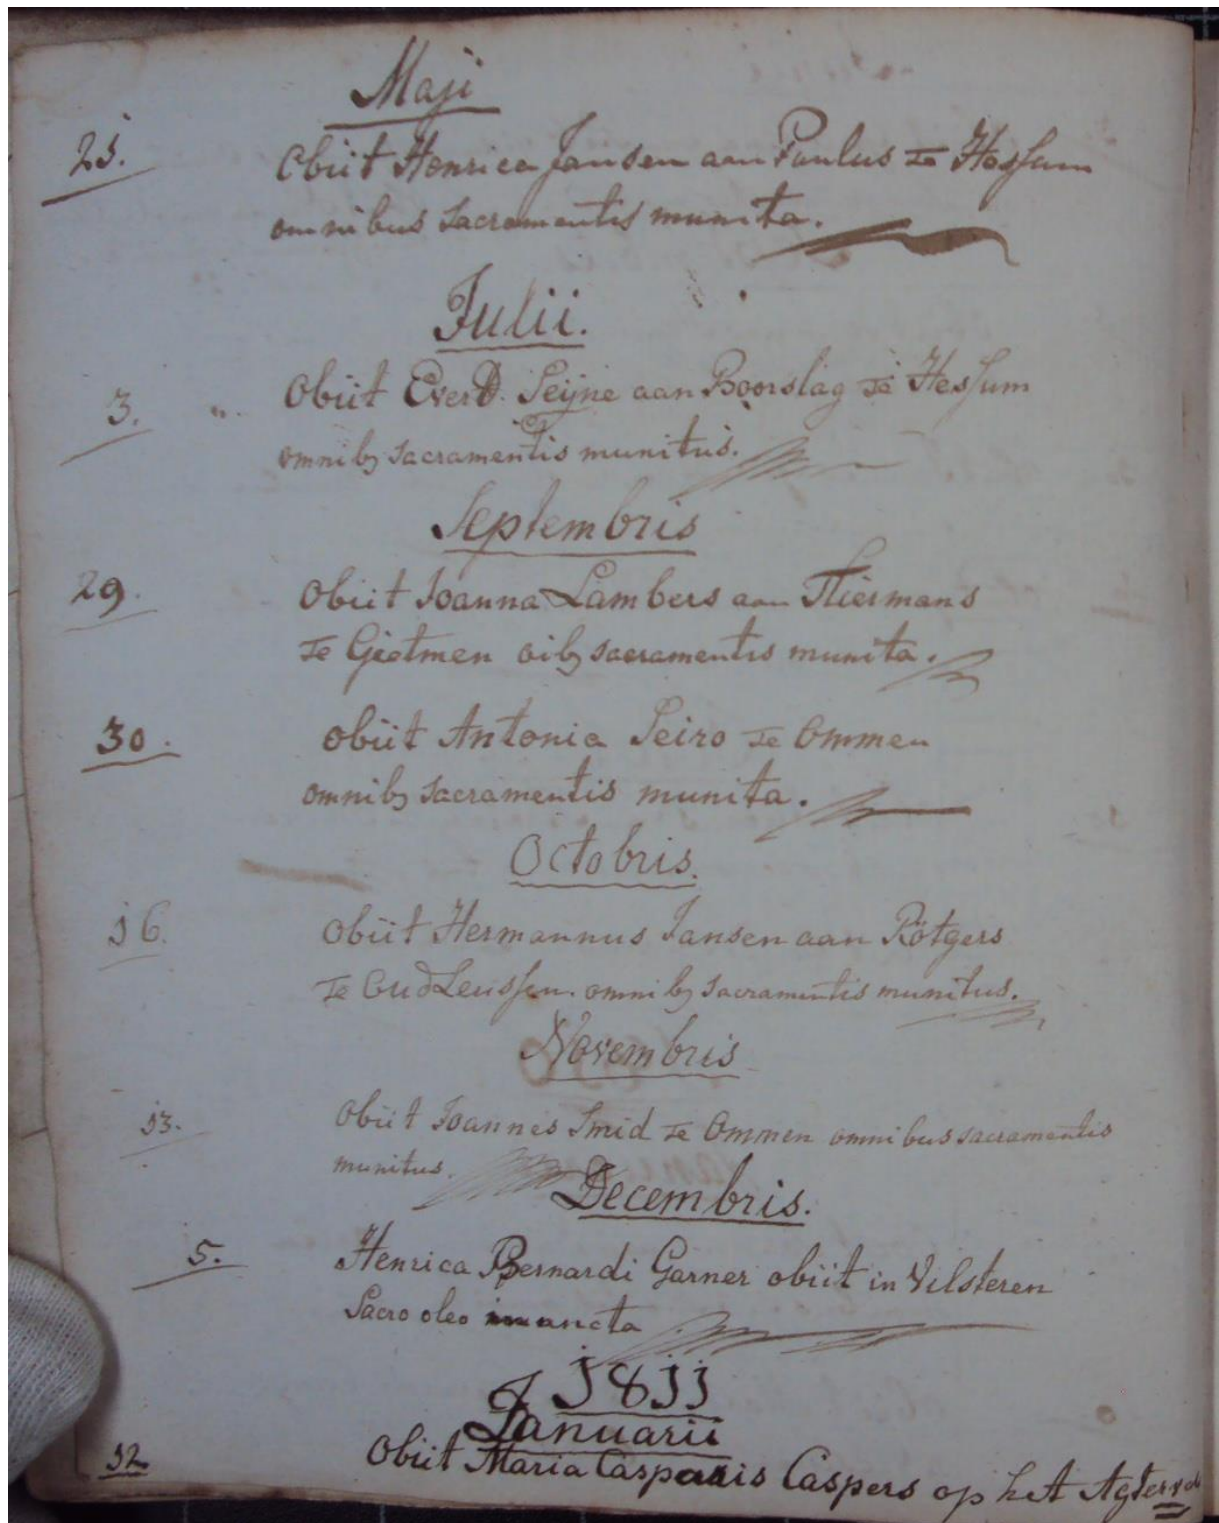 Maji
25. Obiit Henrica Jansen aan Paulus te Hessum
omnibus sacramentis munita.
Julii.
3. Obiit Everd. Seijne aan Boorslag te Hessum
omnib9 sacramentis munitus.
Septembris
29. Obiit Joanna Lambers aan
te Gietmen oib9 sacramentis munita.
30. obiit Antonia Seiro te Ommen
omnib9 sacramentis munita.
Octobris.
16. Obiit Hermannus Jansen aan Rötgers
te OudLeussen. omnib9 sacramentis munitus.
Novembris
13. Obiit Joannes Smid te Ommen omnibus sacramentis
munitus.
Decembris.
5. Henrica Bernardi Garner obiit in Vilsteren
Sacro oleo inuncta
1811
Januarii
12 Obiit Maria Casparis Caspers op het